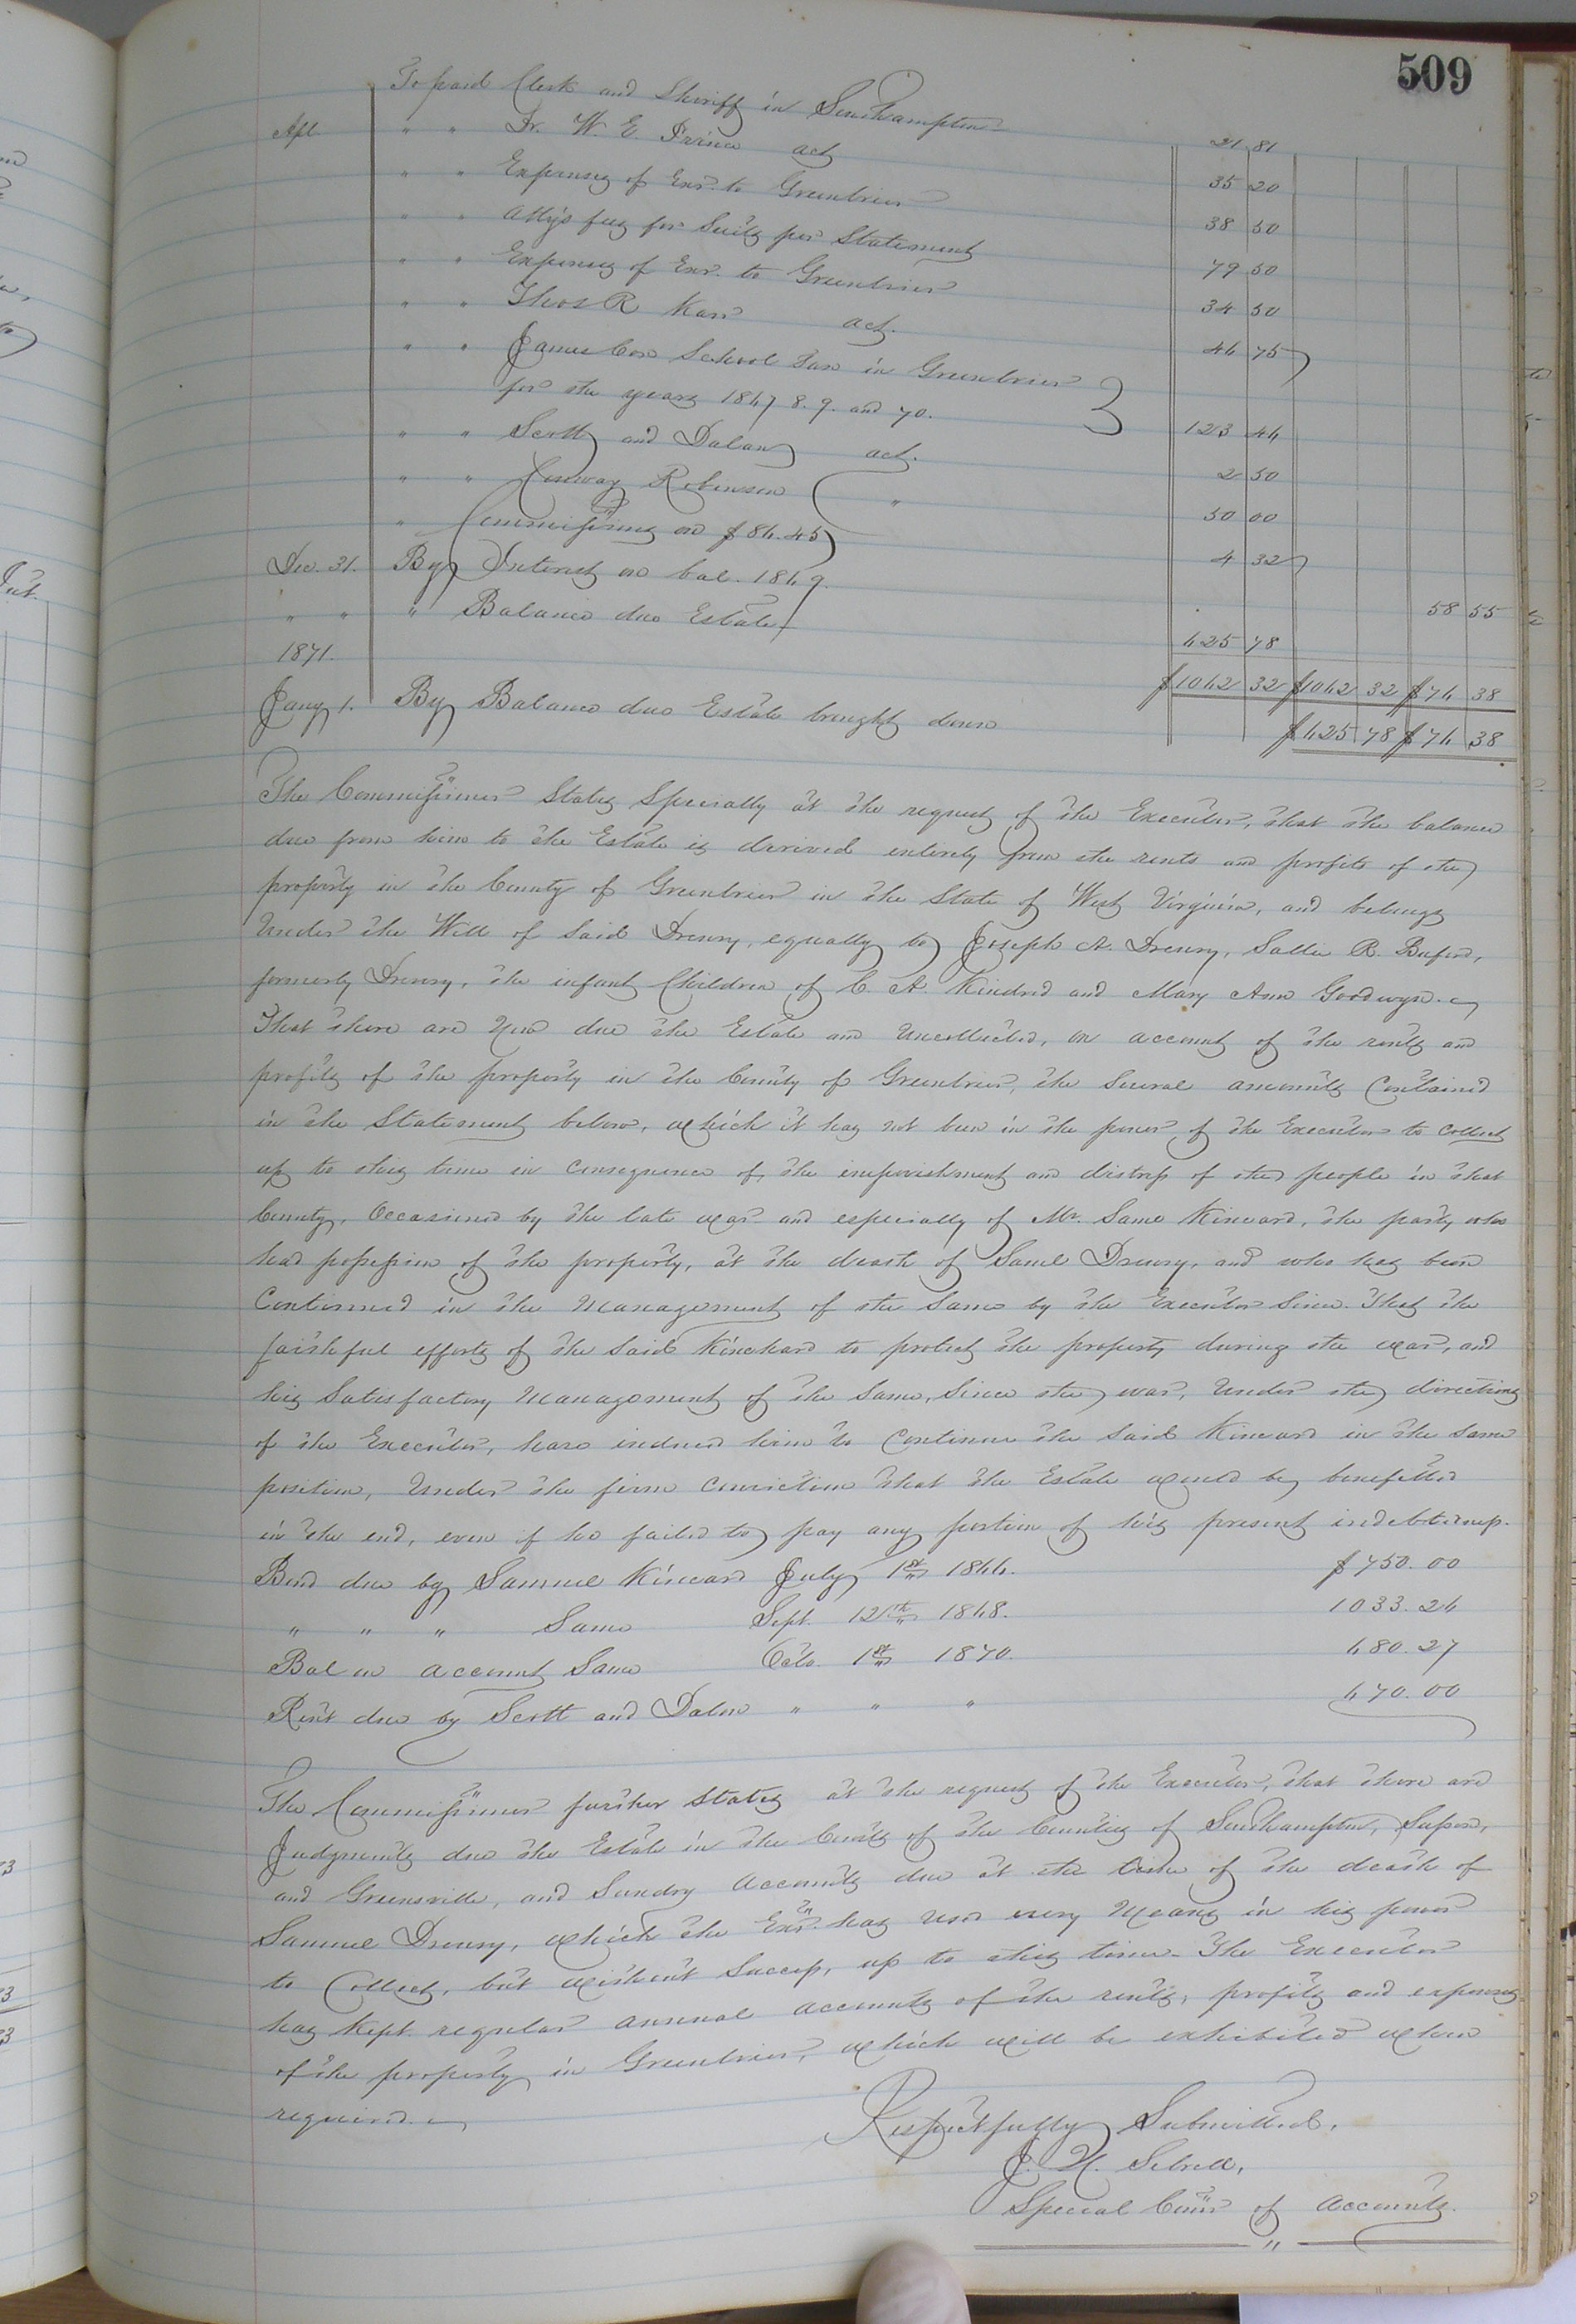 509
To paid Clerk and Sheriff in Southampton 21 81
Apl. " " Dr. W. E. Prince act 35 20
" " Expenses of Exr. to Greenbrier 38 50
" " Atty's fees for Suits per Statement 79 50
" " Expenses of Exr. to Greenbrier 34 50
" " Thos R act. 46 75
" " James Cox School Tax in Greenbrier
for the years 1867 8. 9. and 70. 123 44
" " Scott and act. 2 50
" " Conway Robinson " 50 00
" Commissions on $86.45 4 32
Dec. 31. By Interest on bal. 1869. 58 55
" " " Balance due Estate 625 78
1871. $1062 32 $1062 32 $76 38
Jany 1. By Balance due Estate brought down $625 78 $76 38
The Commissioner States Specially at the request of the Executor, that the balance
due from him to the Estate is derived entirely from the rents and profits of the
property in the County of Greenbrier in the State of West Virginia, and belongs
Under the Will of Said Drewry, equally to Joseph A. Drewry, Sallie R. Buford,
formerly Drewry, the infant Children of C. A. Kindred and Mary Ann Goodwyn.
That there are Now due the Estate and Uncollected, on account of the rents and
profits of the property in the County of Greenbrier, the Several amounts Contained
in the Statement below, which it has not been in the power of the Executor to Collect
up to this time in Consequence of the impovishment and distress of the people in that
County, Occasioned by the late war and especially of Mr. Saml Kincard, the party who
had possession of the property, at the death of Saml Drewry, and who has been
Continued in the Management of the Same by the Executor Since. That the
faithful efforts of the Said Kinchard to protect the property during the war, and
his Satisfactory Management of the Same, Since the war, Under the directions
of the Executor, have induced him to Continue the Said Kincard in the Same
position, Under the firm Conviction that the Estate would be benefitted
in the end, even if he failed to pay any portion of his present indebtedness.
Bond due by Samuel Kincard July 1st 1866. $750.00
" " " Same Sept. 12th 1868. 1033.24
Bal on account Same Octo. 1st 1870. 680.27
Rent due by Scott and " " " 670.00
The Commissioner further States at the request of the Executor, that there are
Judgments due the Estate in the Courts of the Counties of Southampton, Sussex,
and Greensville, and Sundry Accounts due at the time of the death of
Samuel Drewry, which the Exr. has used every Means in his power
to Collect, but without Success, up to this time. The Executor
has kept regular annual accounts of the rents, profits and expenses
of the property in Greenbrier, which will be exhibited when
required.
Respectfully Submitted,
J. N. Sebrell,
Special Comr of Accounts.